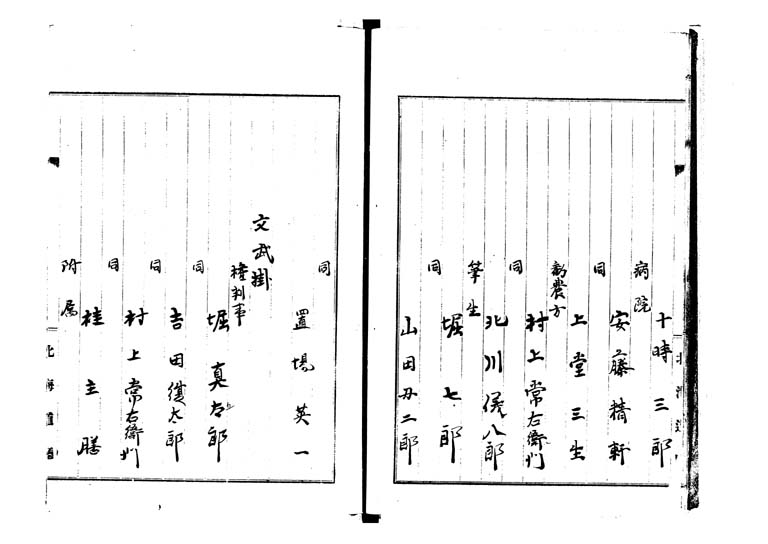 十時三郎
病院
安藤精軒
同
上堂三生
勧農方
村上常右衛門
同
北川儀八郎
筆生
堀七郎
同
山田丹二郎
同
置場英一
文武掛
権判事
堀真五郎
同
吉田復太郎
同
村上常右衛門
同
桂主勝
附属
北海道